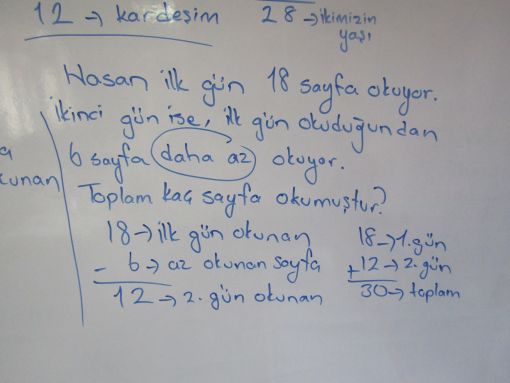 12 → kardeşim
28 → ikimizin
yaşı
Hasan ilk gün 18 sayfa okuyor.
İkinci gün ise, ilk gün okuduğundan
6 sayfa daha az okuyor.
Toplam kaç sayfa okumuştur?
18 → ilk gün okunan
- 6 → az okunan sayfa
12 → 2. gün okunan
18 → 1. gün
+ 12 → 2. gün
30 → toplam